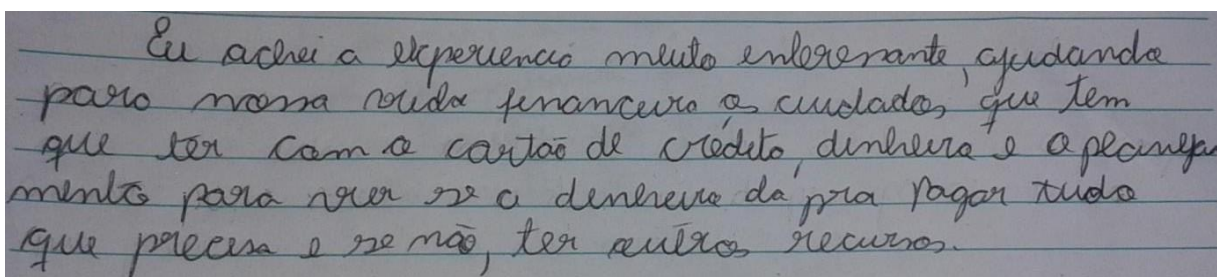 Eu achei a experiencia muito enteresante, ajudando
para nossa vida financeira os cuidados, que tem
que ter com o cartão de crédito, dinheiro e o planeja
mento para ver se o dinheiro da pra pagar tudo
que precisa e se não, ter outros recursos.